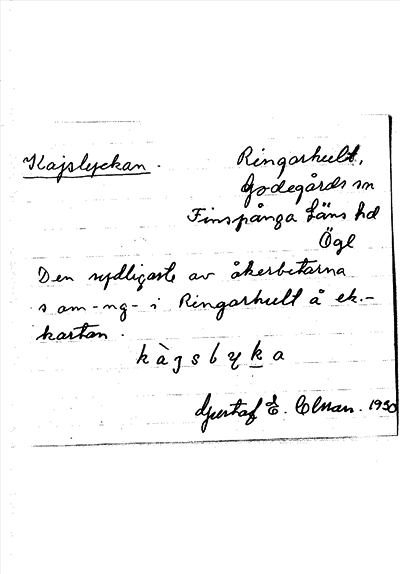 Kajslyckan.
Ringarhult,
Godegårds sn
Finspånga Läns hd
Ögl
Den sydligaste av åkerbitarna
som -ng- i Ringarhult å ek.-
kartan.
kàjslyka
Gustaf E. 1930